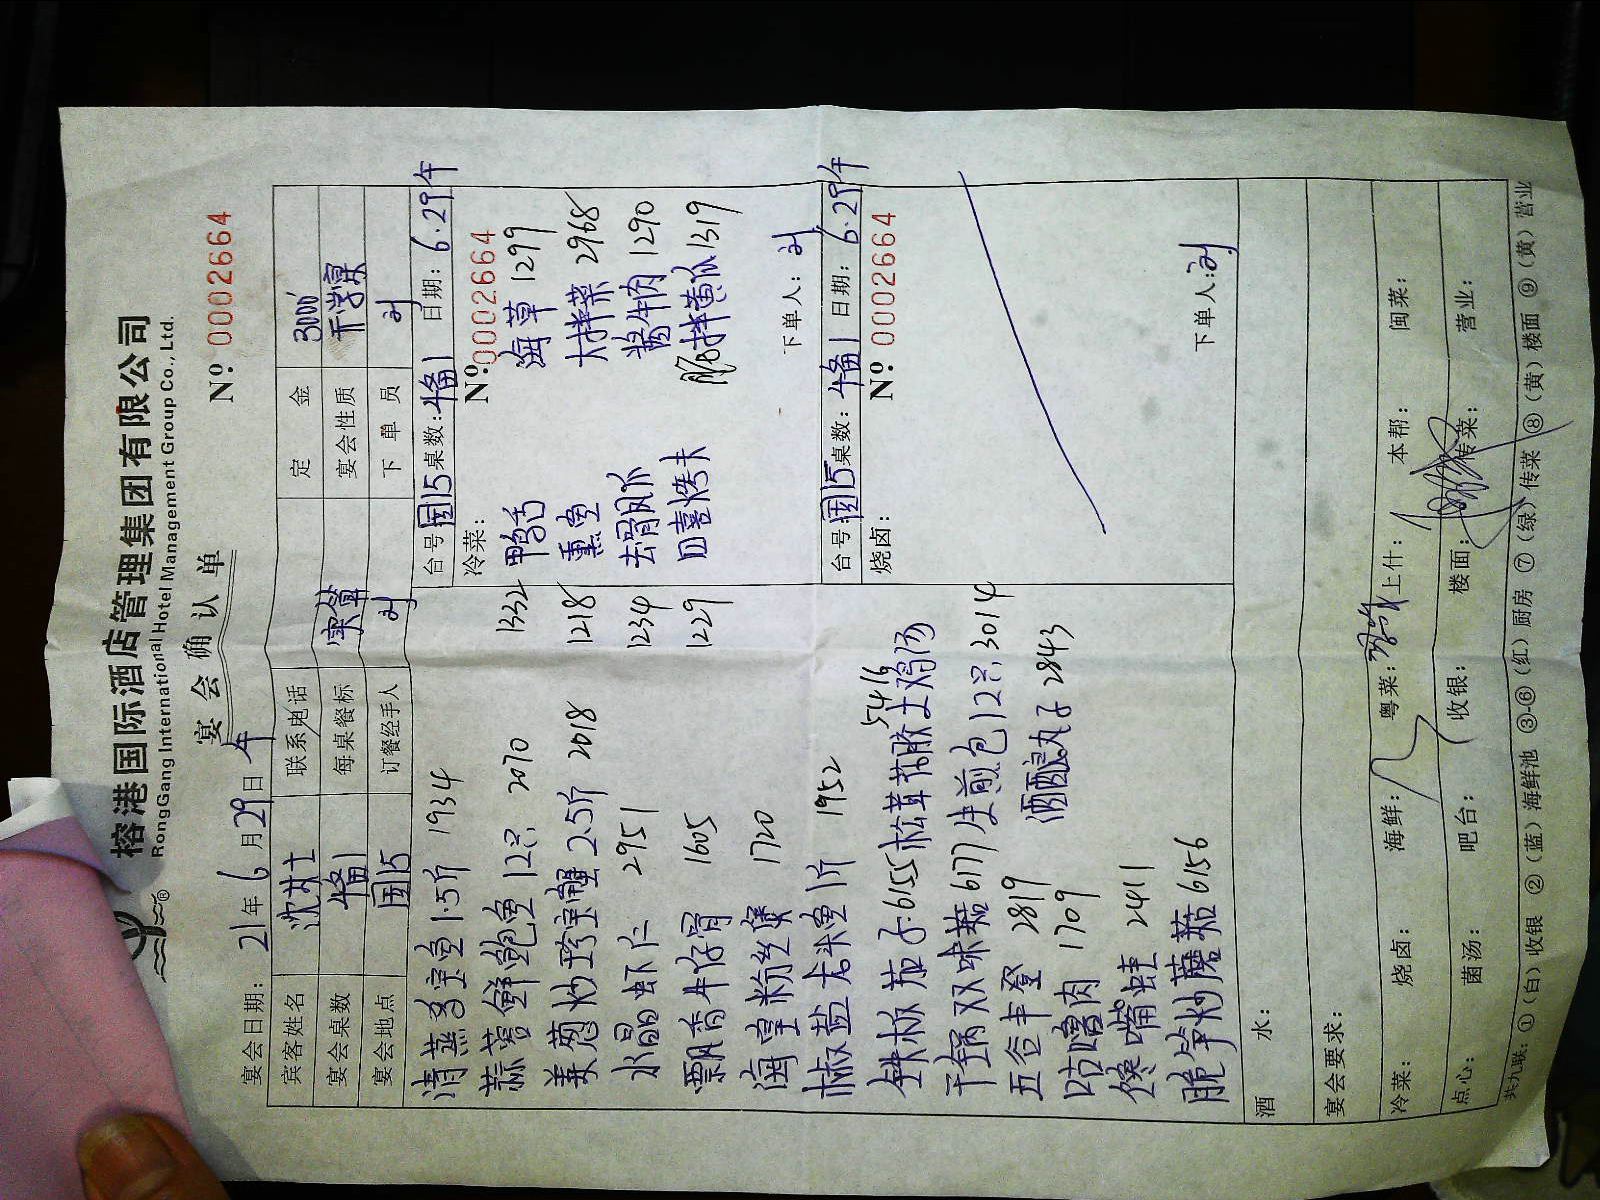 榕港国际酒店管理集团有限公司
RongGang International Hotel Management Group Co., Ltd.
宴会确认单
№ 0002664
宴会日期: 21年6月29日 午
宾客姓名 沈女士 联系电话 定金 3000
宴会桌数 1备1 每桌餐标 实算 宴会性质 升学宴
宴会地点 国15 订餐经手人 刘 下单员 刘
清蒸多宝鱼1.5斤 1934
蒜蓉鲜鲍鱼12只 2070
姜葱炒珍宝蟹2.5斤 2018
水晶虾仁 2951
飘香牛仔骨 1605
海皇粉丝煲 1720
椒盐龙头鱼1斤 1952
铁板茄子 6155
松茸花胶土鸡汤 5416
干锅双味菇 6177
生煎包12只 3014
五谷丰登 2819
酒酿丸子 2843
咕噜肉 1709
馋嘴蛙 2411
脆笋炒蘑菇 6156
台号 国15 桌数: 1备1 日期: 6.29午
№ 0002664
冷菜:
鸭舌 1332
海草 1299
熏鱼 1218
大拌菜 2968
去骨凤爪 1234
酱牛肉 1290
四喜烤夫 1229
脆拌黄瓜 1319
下单人: 刘
台号 国15 桌数: 1备1 日期: 6.29午
№ 0002664
烧卤:
下单人: 刘
酒水:
宴会要求:
冷菜: 烧卤: 海鲜: 粤菜: 上什: 本帮: 闽菜:
点心: 菌汤: 吧台: 收银: 楼面: 传菜: 营业:
共九联: ①(白)收银 ②(蓝)海鲜池 ③-⑥(红)厨房 ⑦(绿)传菜 ⑧(黄)楼面 ⑨(黄)营业